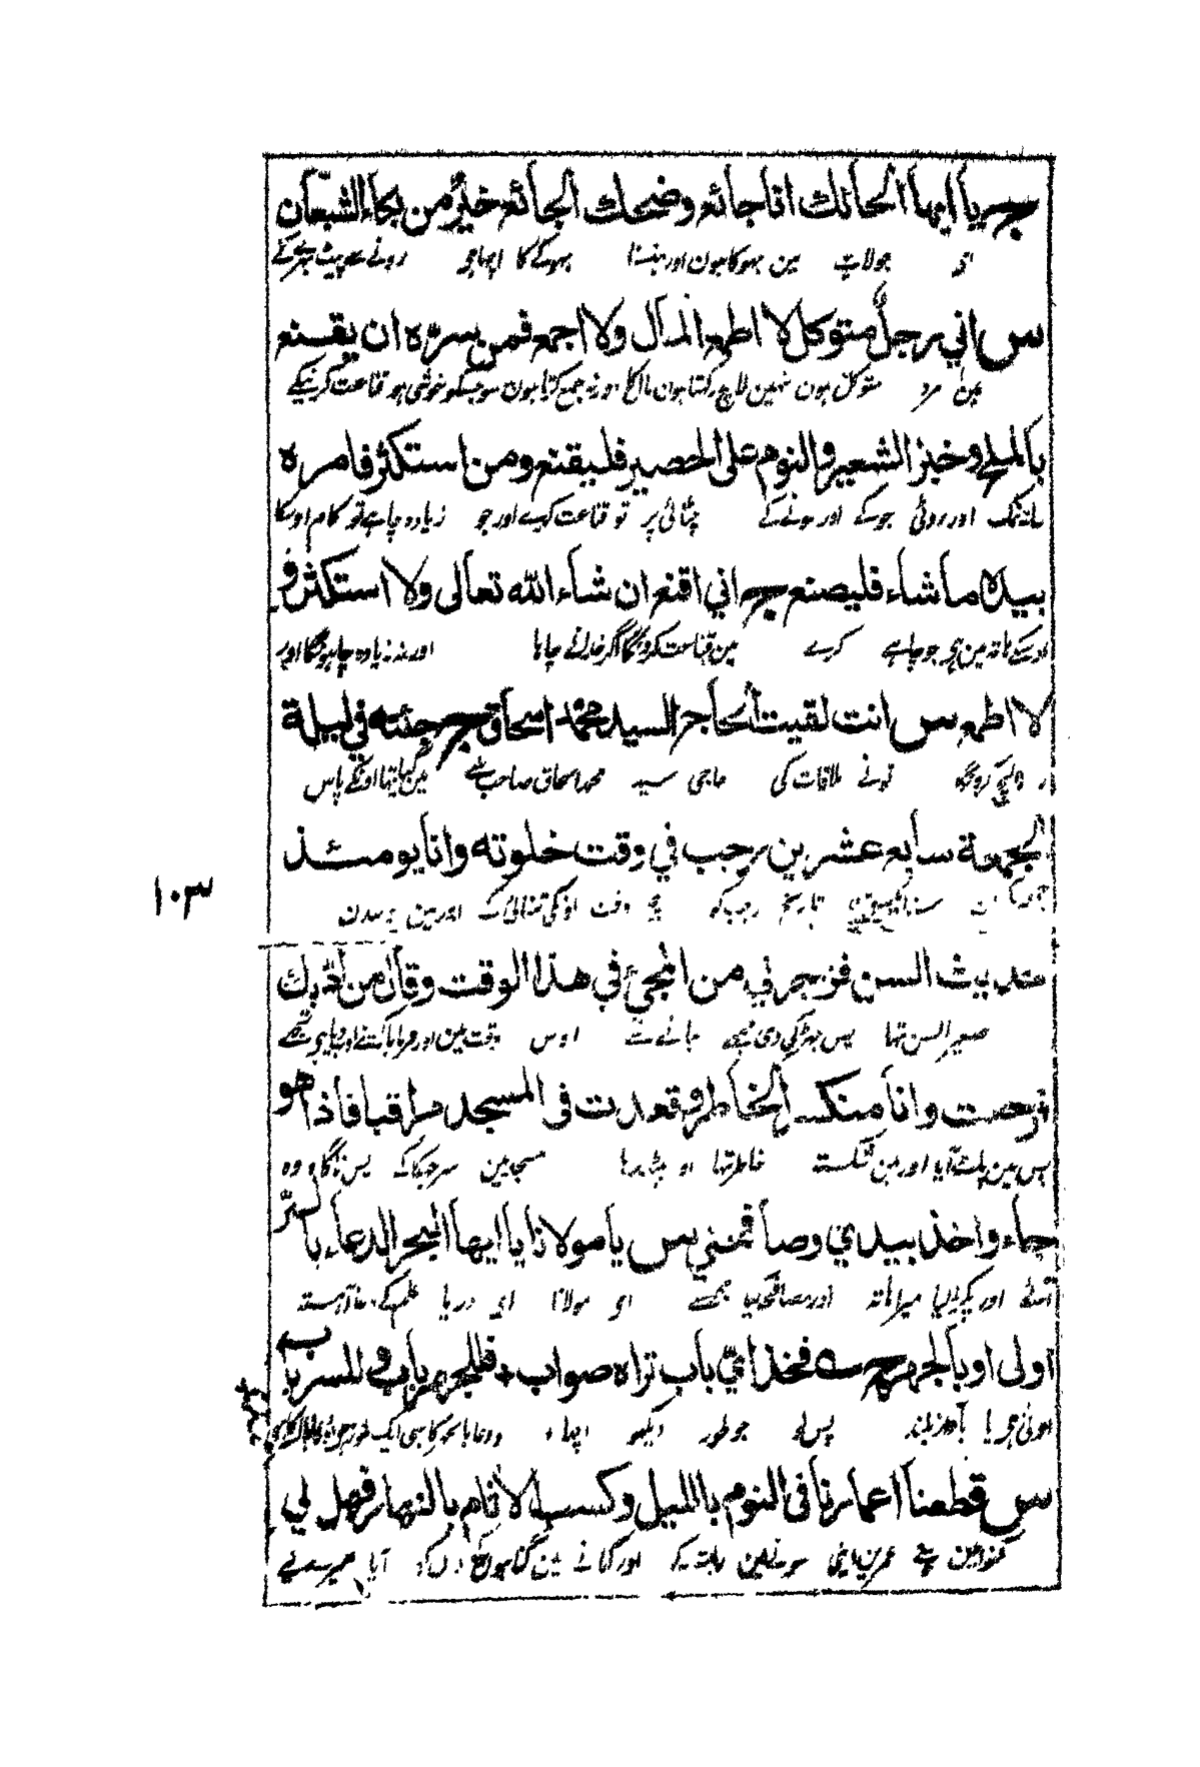 ج يا ايها الحائك انا جائع وضحك الجائع خير من بكاء الشبعان
اى جولاہے مین بھوکا ہون اور ہنسنا بھوکے کا اچھا ہے رونے سے پیٹ بھرے کے
س اني رجل متوكل لا اطمع المال ولا اجمع فمن يسره ان يقنع
مین مرد متوکل ہون نہین لالچ رکھتا ہون مال کا اور نہ جمع کرتا ہون سو جسکو خوشی ہو قناعت کرنیکے
بالملح وخبز الشعير والنوم على الحصير فليقنع ومن استكثر فامره
ساتھ نمک اور روٹی جو کے اور سونے کے چٹائی پر تو قناعت کرے اور جو زیادہ چاہے تو کام اوسکا
بيده ما شاء فليصنع ج اني اقنع ان شاء الله تعالى ولا استكثر و
اوسکے ہاتھ مین ہے جو چاہے کرے مین قناعت کرونگا اگر خدا نے چاہا اور نہ زیادہ چاہونگا اور
لا اطمع س انت لقيت الحاج السيد محمد اسحاق ج جئته في ليلة
نہ لالچ کرونگا تونے ملاقات کی حاجی سید محمد اسحاق صاحب سے مین گیا تھا اونکے پاس
الجمعة سابع عشرين رجب في وقت خلوته وانا يومئذ
تاریخ رجب کو بیچ وقت اونکی تنہائی کے اور مین اوسدن
حديث السن فزجرني من المجئ في هذا الوقت وقال من ادبك
صغیر السن تھا پس جھڑکی دی مجھے جانے سے اوس وقت مین اور فرمایا کسنے ادب دیا ہے تجھے
فرحت وانا منكسر الخاطر وقعدت فى المسجد مراقبا فاذا هو
پس مین پلٹ آیا اور مین شکستہ خاطر تھا اور بیٹھ رہا مسجد مین سر جھکا کے پس ناگاہ وہ
جاء واخذ بيدي وصافحني س يا مولانا يا ايها البحر الدعاء بالسر
آئے اور پکڑ لیا میرا ہاتھ اور مصافحہ کیا مجھسے اى مولانا اى دریا علم کے دعا آہستہ
اولى او بالجهر ج ـه فخذ اي باب تراه صواب ٭ فللجهر باب وللسر باب
اولی ہے یا بآواز بلند پس لے جو طور دیکھو اچھا
س قطعنا اعمارنا فى النوم بالليل وكسب الاثام بالنهار فهل لي
گنوائین ہمنے عمرین اپنی سونے مین رات کے اور کمانے مین گناہون کے دن کو آیا میرے لیے
١٠٣